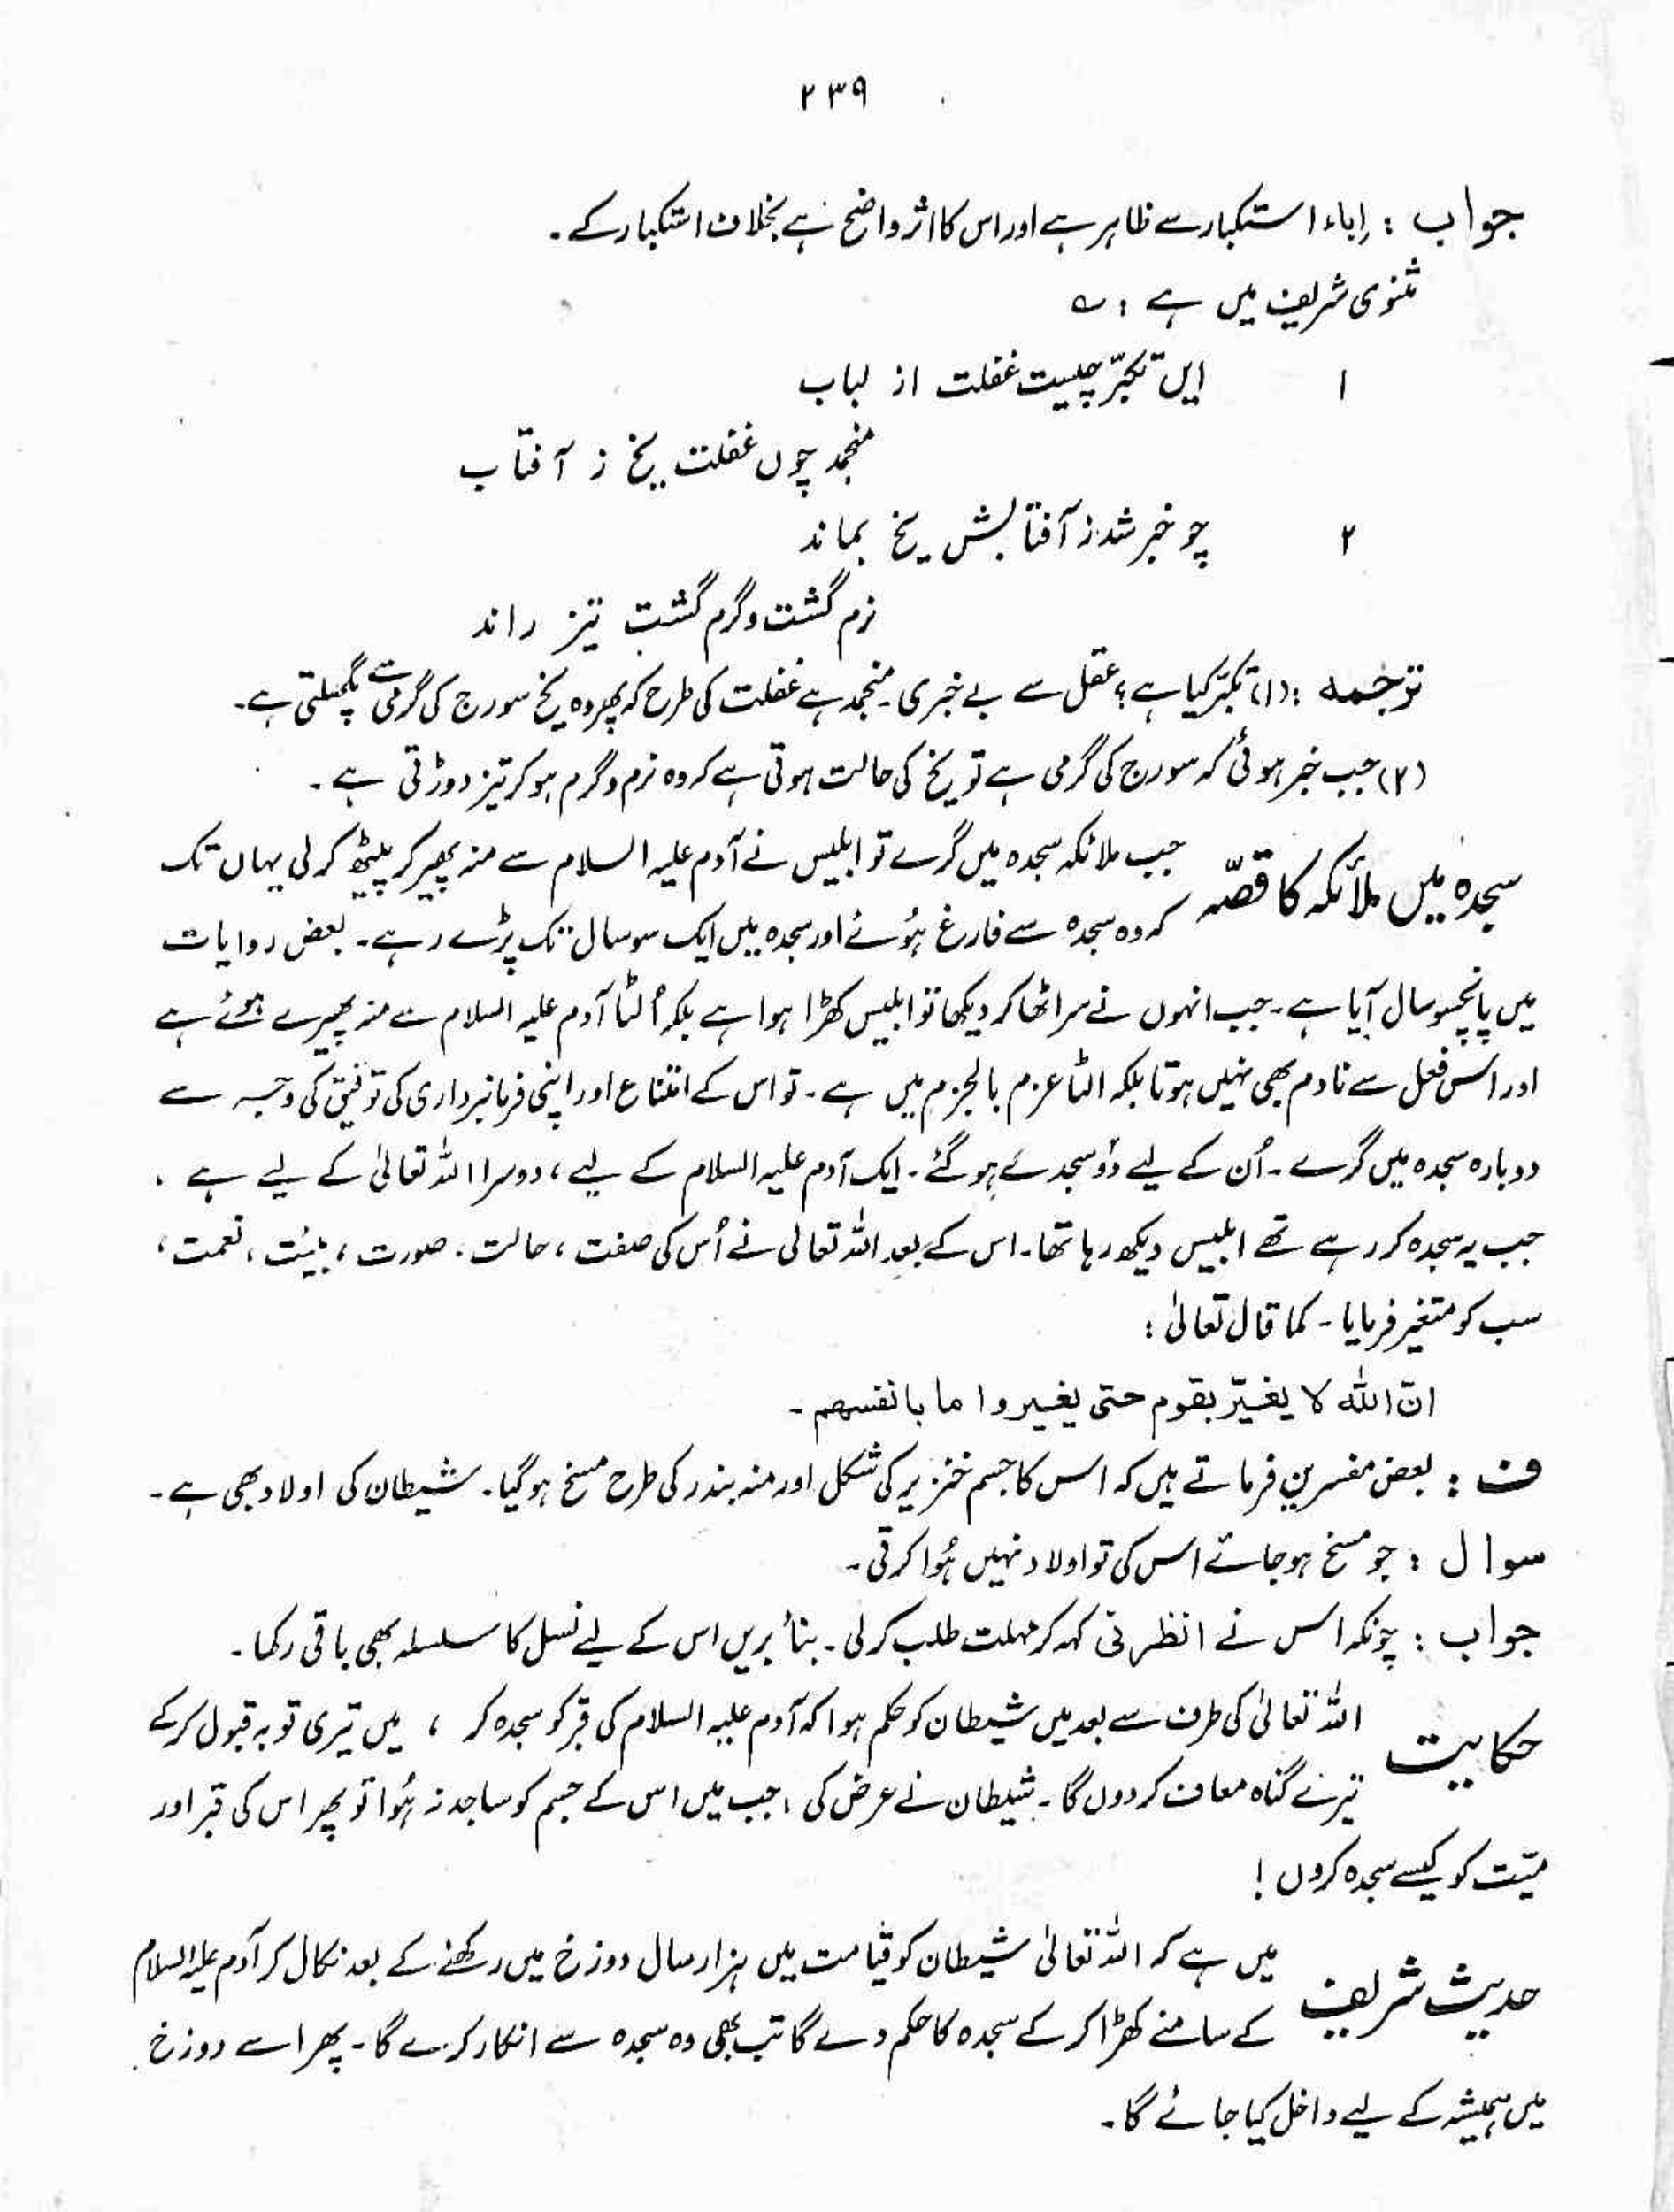 ۲۳۹
جواب : اِباء استکبار سے ظاہر ہے اور اس کا اثر واضح ہے بخلاف استکبار کے ۔
مثنوی شریف میں ہے : ؎
۱ ایں تکبّر چیست غفلت از لباب
منجمد چوں غفلت یخ ز آفتاب
۲ چو خبر شد ز آفتابش یخ نماند
نرم گشت و گرم گشت تیز راند
ترجمہ : (۱) تکبّر کیا ہے ؛ عقل سے بے خبری ۔ منجمد ہے غفلت کی طرح کہ پھر وہ یخ سورج کی گرمی سے پگھلتی ہے ۔
(۲) جب خبر ہوئی کہ سورج کی گرمی ہے تو یخ کی حالت ہوتی ہے کہ وہ نرم و گرم ہو کر تیز دوڑتی ہے ۔
سجدہ میں ملائکہ کا قصّہ جب ملائکہ سجدہ میں گرے تو ابلیس نے آدم علیہ السلام سے منہ پھیر کر پیٹھ کر لی یہاں تک
کہ وہ سجدہ سے فارغ ہُوئے اور سجدہ میں ایک سو سال تک پڑے رہے ۔ بعض روایات
میں پانچسو سال آیا ہے ۔ جب انہوں نے سر اٹھا کر دیکھا تو ابلیس کھڑا ہوا ہے بلکہ اُلٹا آدم علیہ السلام سے منہ پھیرے ہوئے ہے
اور اس فعل سے نادم بھی نہیں ہوتا بلکہ الٹا عزم بالجزم میں ہے ۔ تو اس کے امتناع اور اپنی فرمانبرداری کی توفیق کی وجہ سے
دوبارہ سجدہ میں گرے ۔ اُن کے لیے دو سجدے ہو گئے ۔ ایک آدم علیہ السلام کے لیے ، دوسرا اللہ تعالیٰ کے لیے ہے ۔
جب یہ سجدہ کر رہے تھے ابلیس دیکھ رہا تھا ۔ اس کے بعد اللہ تعالیٰ نے اُس کی صفت ، حالت ، صورت ، ہیئت ، نعمت ،
سب کو متغیر فرمایا ۔ کما قال تعالیٰ :
انّ اللہ لا یغیّر بقوم حتی یغیروا ما بانفسہم ۔
ف : بعض مفسرین فرماتے ہیں کہ اس کا جسم خنزیر کی شکل اور منہ بندر کی طرح مسخ ہو گیا ۔ شیطان کی اولاد بھی ہے ۔
سوال : جو مسخ ہو جائے اس کی تو اولاد نہیں ہُوا کرتی ۔
جواب : چونکہ اس نے انظرنی کہہ کر مہلت طلب کر لی ۔ بنأ بریں اس کے لیے نسل کا سلسلہ بھی باقی رکھا ۔
حکایت اللہ تعالیٰ کی طرف سے بعد میں شیطان کو حکم ہوا کہ آدم علیہ السلام کی قبر کو سجدہ کر ، میں تیری توبہ قبول کر کے
تیرے گناہ معاف کر دوں گا ۔ شیطان نے عرض کی ، جب میں اس کے جسم کو ساجد نہ ہُوا تو پھر اس کی قبر اور
میّت کو کیسے سجدہ کروں !
حدیث شریف میں ہے کہ اللہ تعالیٰ شیطان کو قیامت میں ہزار سال دوزخ میں رکھنے کے بعد نکال کر آدم علیہ السلام
کے سامنے کھڑا کر کے سجدہ کا حکم دے گا تب بھی وہ سجدہ سے انکار کرے گا ۔ پھر اسے دوزخ
میں ہمیشہ کے لیے داخل کیا جائے گا ۔